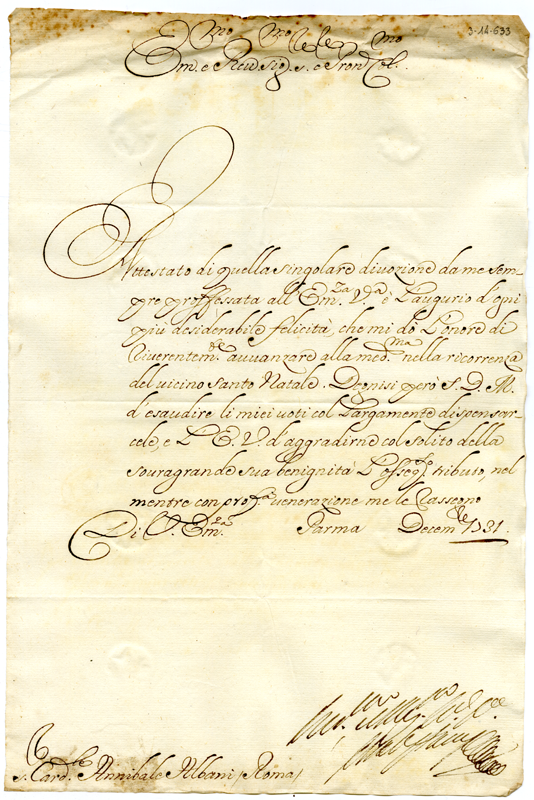 3-14-633
Em.mo e Reu.mo Sig.re, e Pron Col.mo
Attestato di quella singolare divozione da me sem
pre proffessata all'Em.za V.a è l'augurio d'ogni
più desiderabile felicità, che mi dò L'onore di
riverentem.te avvanzare alla med.ma nella ricorrenza
del vicino Santo Natale. Degnisi però S. D. M.
d'esaudire li miei voti col Largamente dispensar
cele, e L'E. V. d'aggradirne col solito della
souragrande sua benignità L'osseq.so tributo, nel
mentre con prof.a venerazione me le Rassegno
Di V. Em.za Parma Decem.bre 1731.
s. Card.le Annibale Albani (Roma)